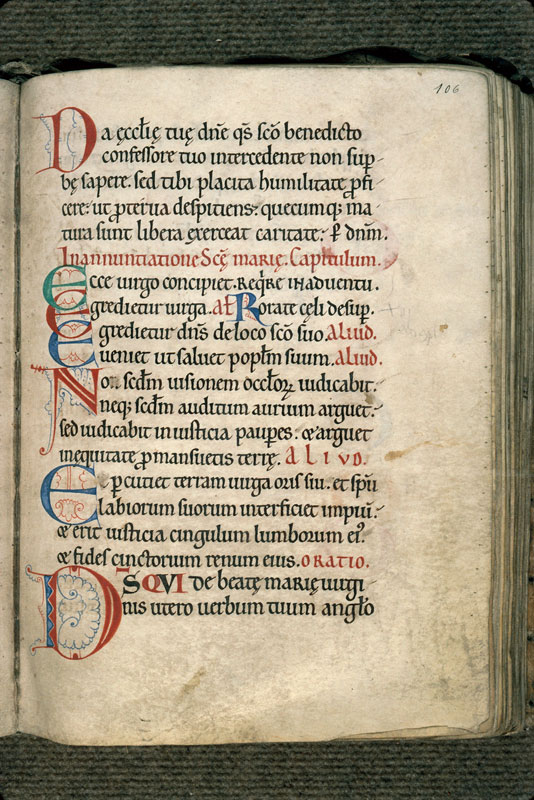 106
Da ęccłię tuę dn̄e q̄s sc̄o benedicto
confessore tuo intercedente non sup̱
bę sapere. sed tibi placita humilitate ꝓfi
cere: ut ꝓterua despitiens: quecumq; ma
tura sunt libera exerceat caritate: ꝑ dnm̄.
In annuntiatione Scę marię. Capitulum.
Ecce uirgo concipiet. Reqͥre in aduentu.
Egredietur uirga. al̄ Rorate cęli desup̱.
Egredietur dn̄s de loco sc̄o suo. Aliud.
Et ueniet ut saluet popłm suum. Aliud.
Non scd̄m uisionem occłoꝝ iudicabit.
neq; scd̄m auditum aurium arguet.
sed iudicabit in iusticia paup̱es. & arguet
in equitate ꝓ mansuetis terrę. Aliud.
Et ꝑcutiet terram uirga oris sui. et spū
labiorum suorum interficiet impiū.
& erit iusticia cingulum lumborum ei᷒.
& fides cinctorium renum eius. oratio.
D̄S QVI de beatę marię uirgi
nis utero uerbum tuum angło